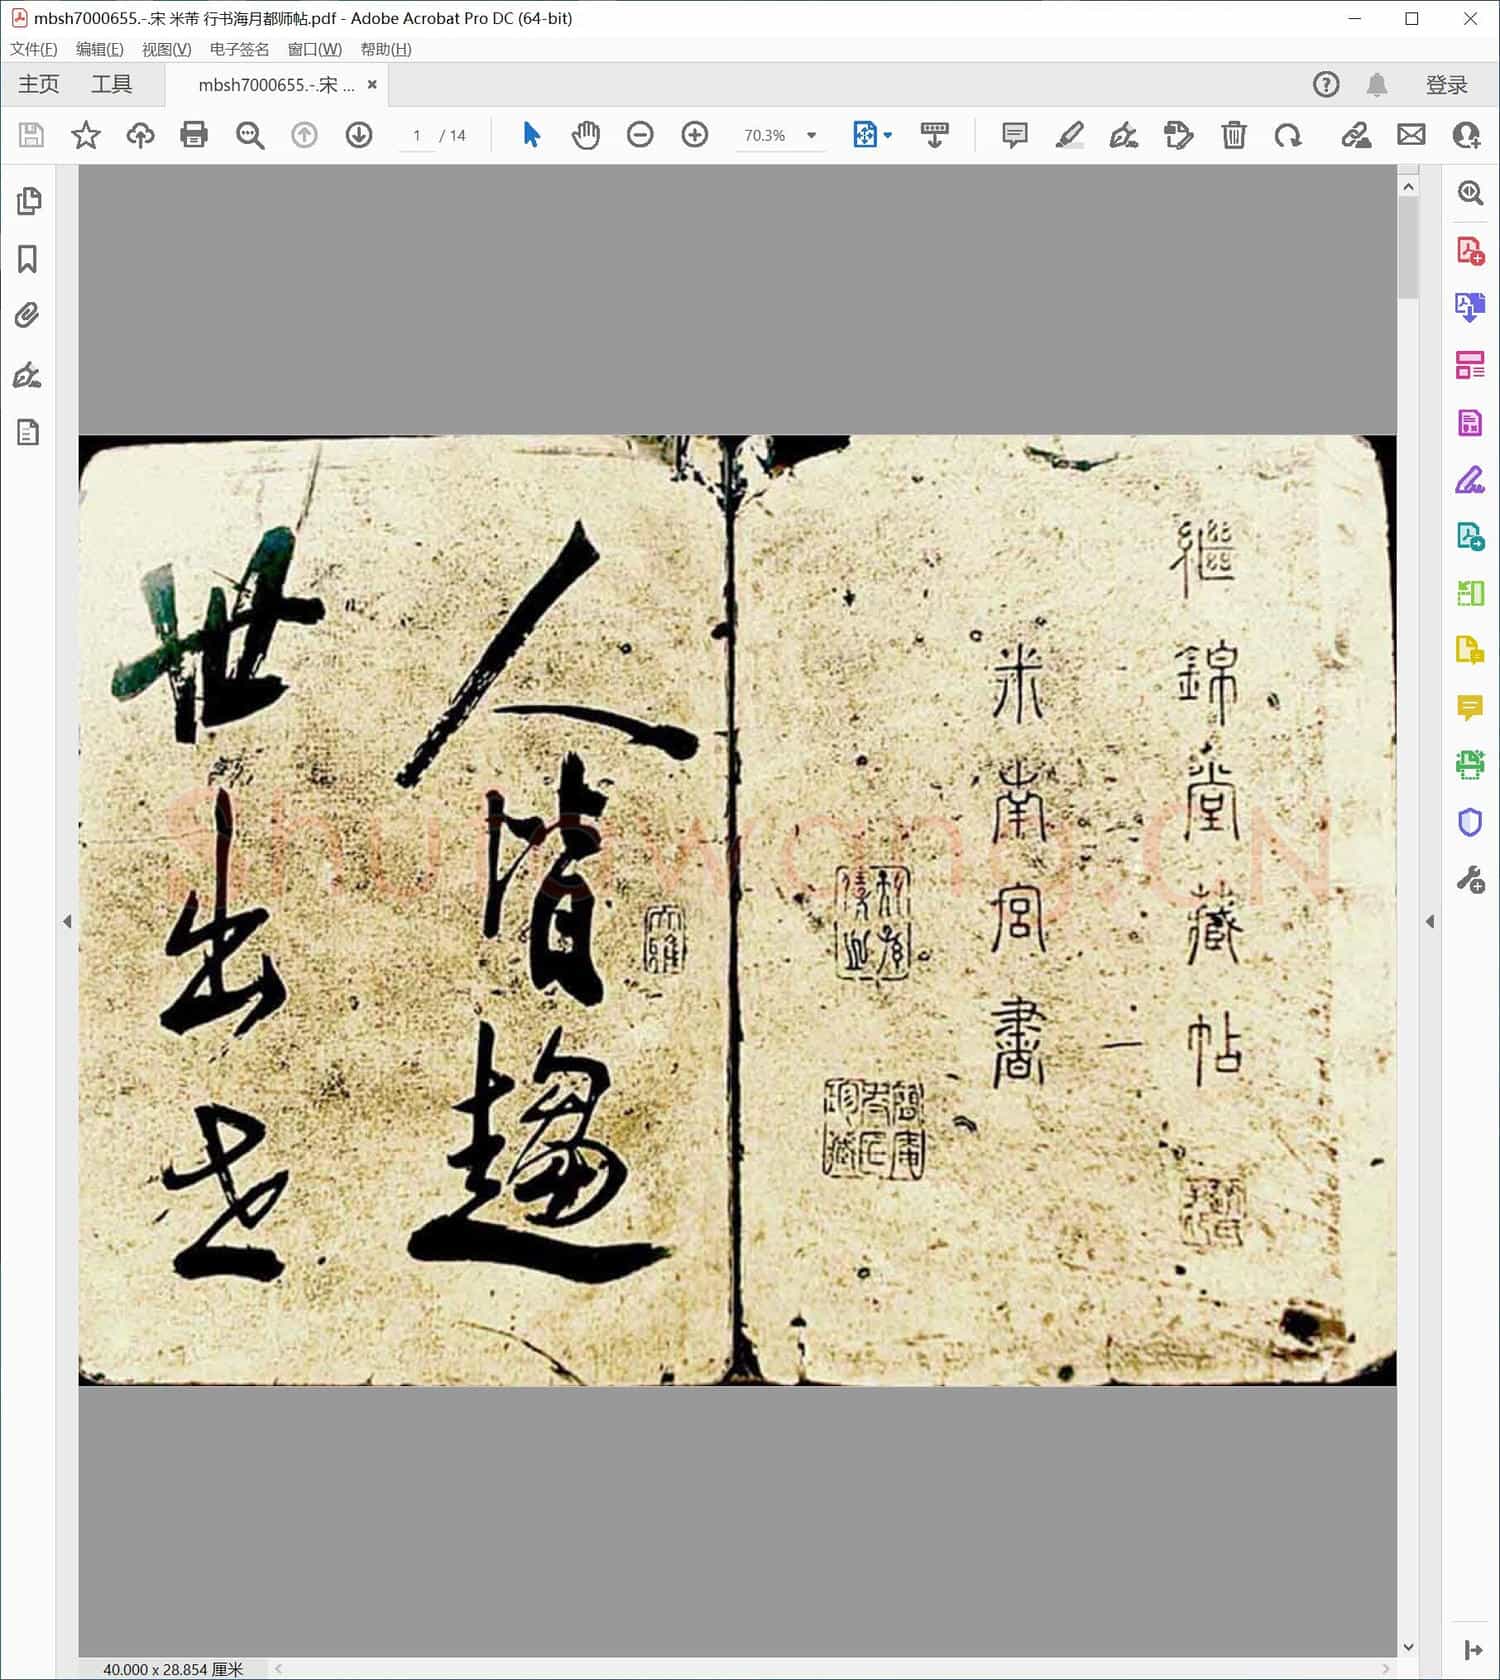 mbsh7000655.-.宋 米芾 行书海月都师帖.pdf - Adobe Acrobat Pro DC (64-bit)
文件(F) 编辑(E) 视图(V) 电子签名 窗口(W) 帮助(H)
主页 工具 mbsh7000655.-.宋 ... 登录
1 / 14 70.3%
繼錦堂藏帖
一
米南宮書
簡庵
珍藏
大雅
人皆趨
世出世
Shufawang.CN
40.000 x 28.854 厘米